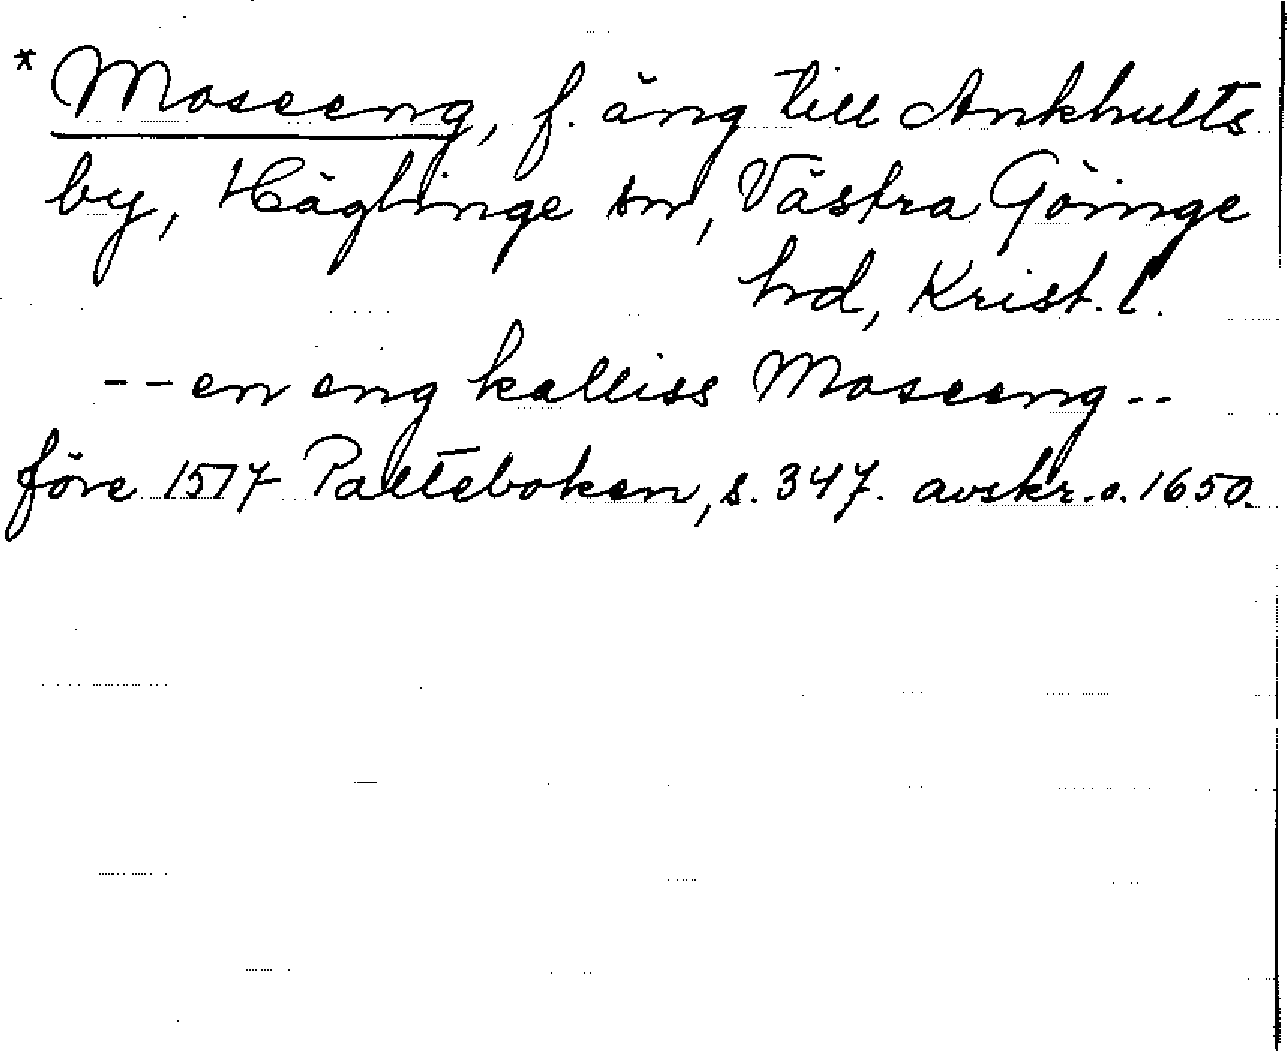 * Moseeng, f. äng till Ankhults
by, Häglinge sn, Västra Göinge
hd, Krist. l.
-- en eng kalliss Moseeng --
före 1517 Palteboken, s. 347. avskr. o. 1650.